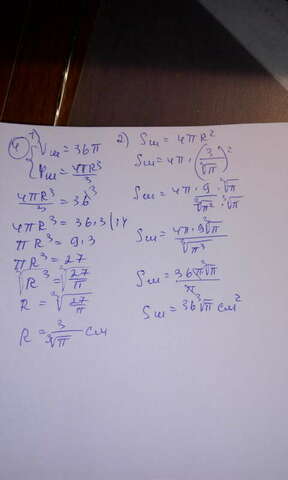 4) 1) { Vш = 36π
Vш = 4πR³/3
4πR³/3 = 36
4πR³ = 36·3 |:4
πR³ = 9·3
πR³ = 27
∛R³ = ∛(27/π)
R = ∛(27/π)
R = 3/∛π см
2) Sш = 4πR²
Sш = 4π·(3/∛π)²
Sш = 4π·9·∛π/(∛π²·∛π)
Sш = 4π·9∛π/∛π³
Sш = 36π∛π/π
Sш = 36∛π см²